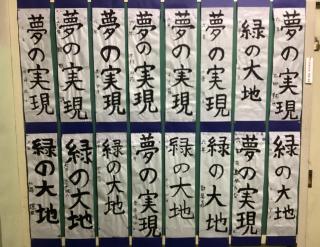 夢の実現
夢の実現
夢の実現
夢の実現
夢の実現
夢の実現
緑の大地
夢の実現
緑の大地
緑の大地
緑の大地
夢の実現
緑の大地
緑の大地
夢の実現
緑の大地